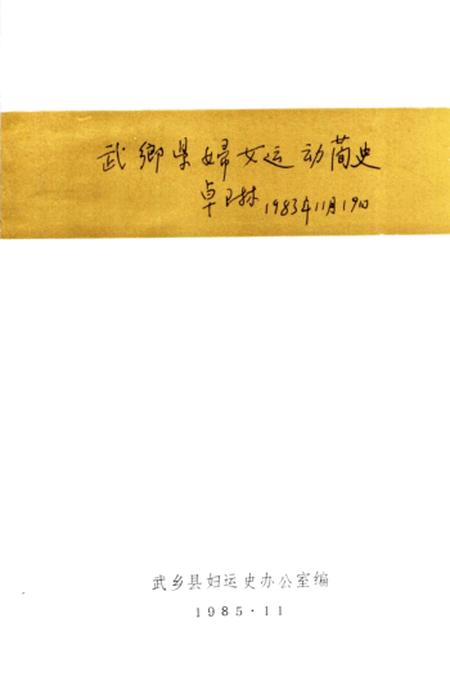 武鄉县婦女运动简史
卓琳 1983年11月19日
武乡县妇运史办公室编
1985·11